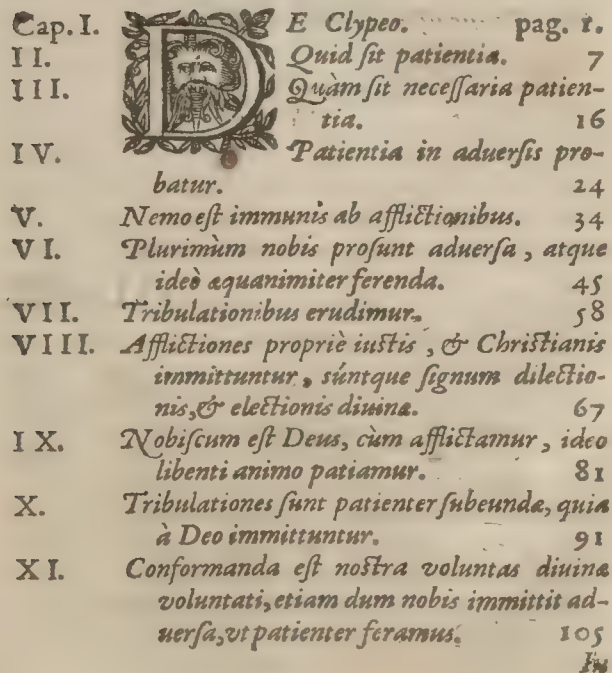 Cap. I. DE Clypeo. pag. 1.
II. Quid ſit patientia. 7
III. Quàm ſit neceſſaria patien-
tia. 16
IV. Patientia in aduerſis pro-
batur. 24
V. Nemo eſt immunis ab afflictionibus. 34
VI. Plurimùm nobis proſunt aduerſa, atque
ideò æquanimiter ferenda. 45
VII. Tribulationibus erudimur. 58
VIII. Afflictiones propriè iuſtis, & Chriſtianis
immittuntur, súntque ſignum dilectio-
nis, & electionis diuinæ. 67
IX. Nobiſcum eſt Deus, cùm afflictamur, ideo
libenti animo patiamur. 81
X. Tribulationes ſunt patienter ſubeundæ, quia
à Deo immittuntur. 91
XI. Conformanda eſt noſtra voluntas diuinæ
voluntati, etiam dum nobis immittit ad-
uerſa, vt patienter feramus. 105
In